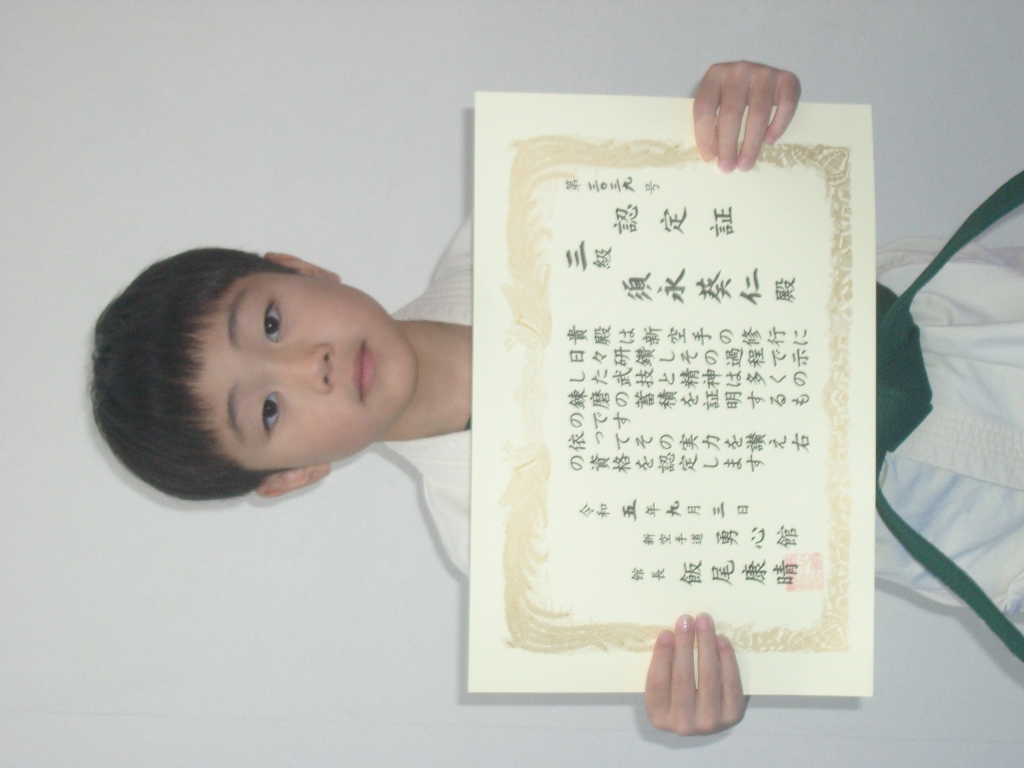 第三〇三九号
認定証
三級
須永葵仁殿
貴殿は新空手の修行に
日々研鑽しその過程で示
した武技と精神は多くの
錬磨の蓄積を証明するも
のです
依ってその実力を讃え右
の資格を認定します
令和五年九月三日
新空手道勇心館
館長飯尾康晴